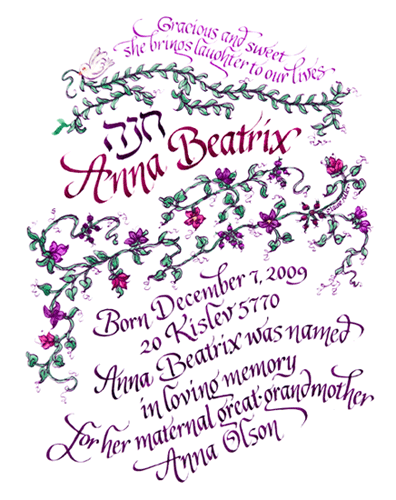 Gracious and sweet
she brings laughter to our lives
חנה
Anna Beatrix
Born December 7, 2009
20 Kislev 5770
Anna Beatrix was named
in loving memory
for her maternal great-grandmother
Anna Olson